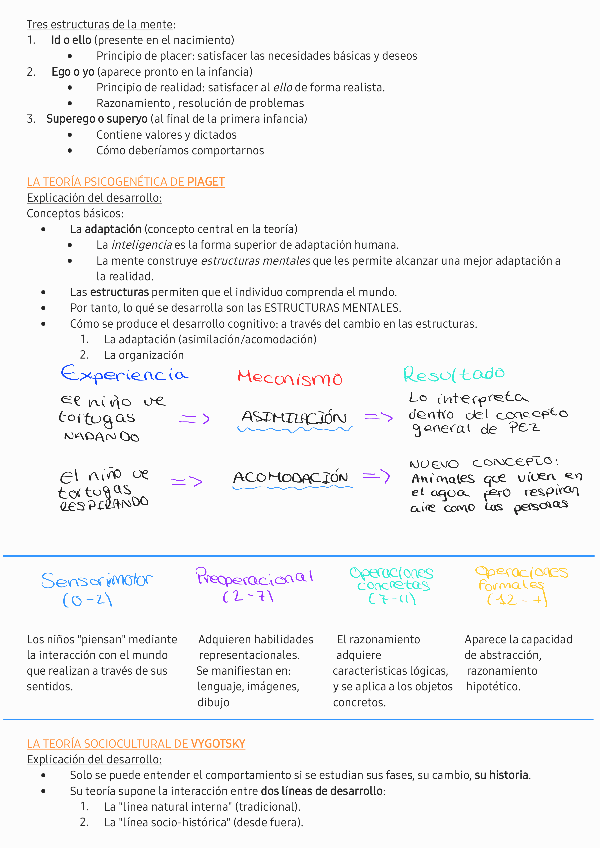 Tres estructuras de la mente:
1. Id o ello (presente en el nacimiento)
• Principio de placer: satisfacer las necesidades básicas y deseos
2. Ego o yo (aparece pronto en la infancia)
• Principio de realidad: satisfacer al ello de forma realista.
• Razonamiento , resolución de problemas
3. Superego o superyo (al final de la primera infancia)
• Contiene valores y dictados
• Cómo deberíamos comportarnos
LA TEORÍA PSICOGENÉTICA DE PIAGET
Explicación del desarrollo:
Conceptos básicos:
• La adaptación (concepto central en la teoría)
• La inteligencia es la forma superior de adaptación humana.
• La mente construye estructuras mentales que les permite alcanzar una mejor adaptación a
la realidad.
• Las estructuras permiten que el individuo comprenda el mundo.
• Por tanto, lo qué se desarrolla son las ESTRUCTURAS MENTALES.
• Cómo se produce el desarrollo cognitivo: a través del cambio en las estructuras.
1. La adaptación (asimilación/acomodación)
2. La organización
Experiencia Mecanismo Resultado
El niño ve
tortugas
NADANDO
=> ASIMILACIÓN =>
Lo interpreta
dentro del concepto
general de PEZ
El niño ve
tortugas
RESPIRANDO
=> ACOMODACIÓN =>
NUEVO CONCEPTO:
Animales que viven en
el agua pero respiran
aire como las personas
Sensorimotor
(0-2)
Preoperacional
(2-7)
Operaciones
concretas
(7-11)
Operaciones
formales
(12-+)
Los niños "piensan" mediante
la interacción con el mundo
que realizan a través de sus
sentidos.
Adquieren habilidades
representacionales.
Se manifiestan en:
lenguaje, imágenes,
dibujo
El razonamiento
adquiere
características lógicas,
y se aplica a los objetos
concretos.
Aparece la capacidad
de abstracción,
razonamiento
hipotético.
LA TEORÍA SOCIOCULTURAL DE VYGOTSKY
Explicación del desarrollo:
• Solo se puede entender el comportamiento si se estudian sus fases, su cambio, su historia.
• Su teoría supone la interacción entre dos líneas de desarrollo:
1. La "línea natural interna" (tradicional).
2. La "línea socio-histórica" (desde fuera).